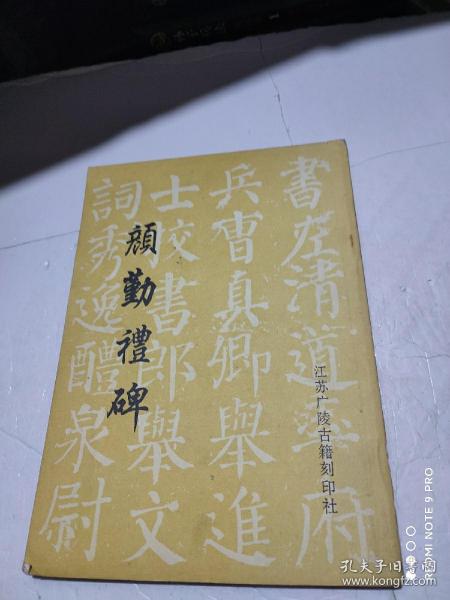 顏勤禮碑
書左清道率府
兵曹真卿舉進
士校書郎舉文
詞秀逸醴泉尉
江苏广陵古籍刻印社
REDMI NOTE 9 PRO
孔夫子旧书网
www.kongfz.com